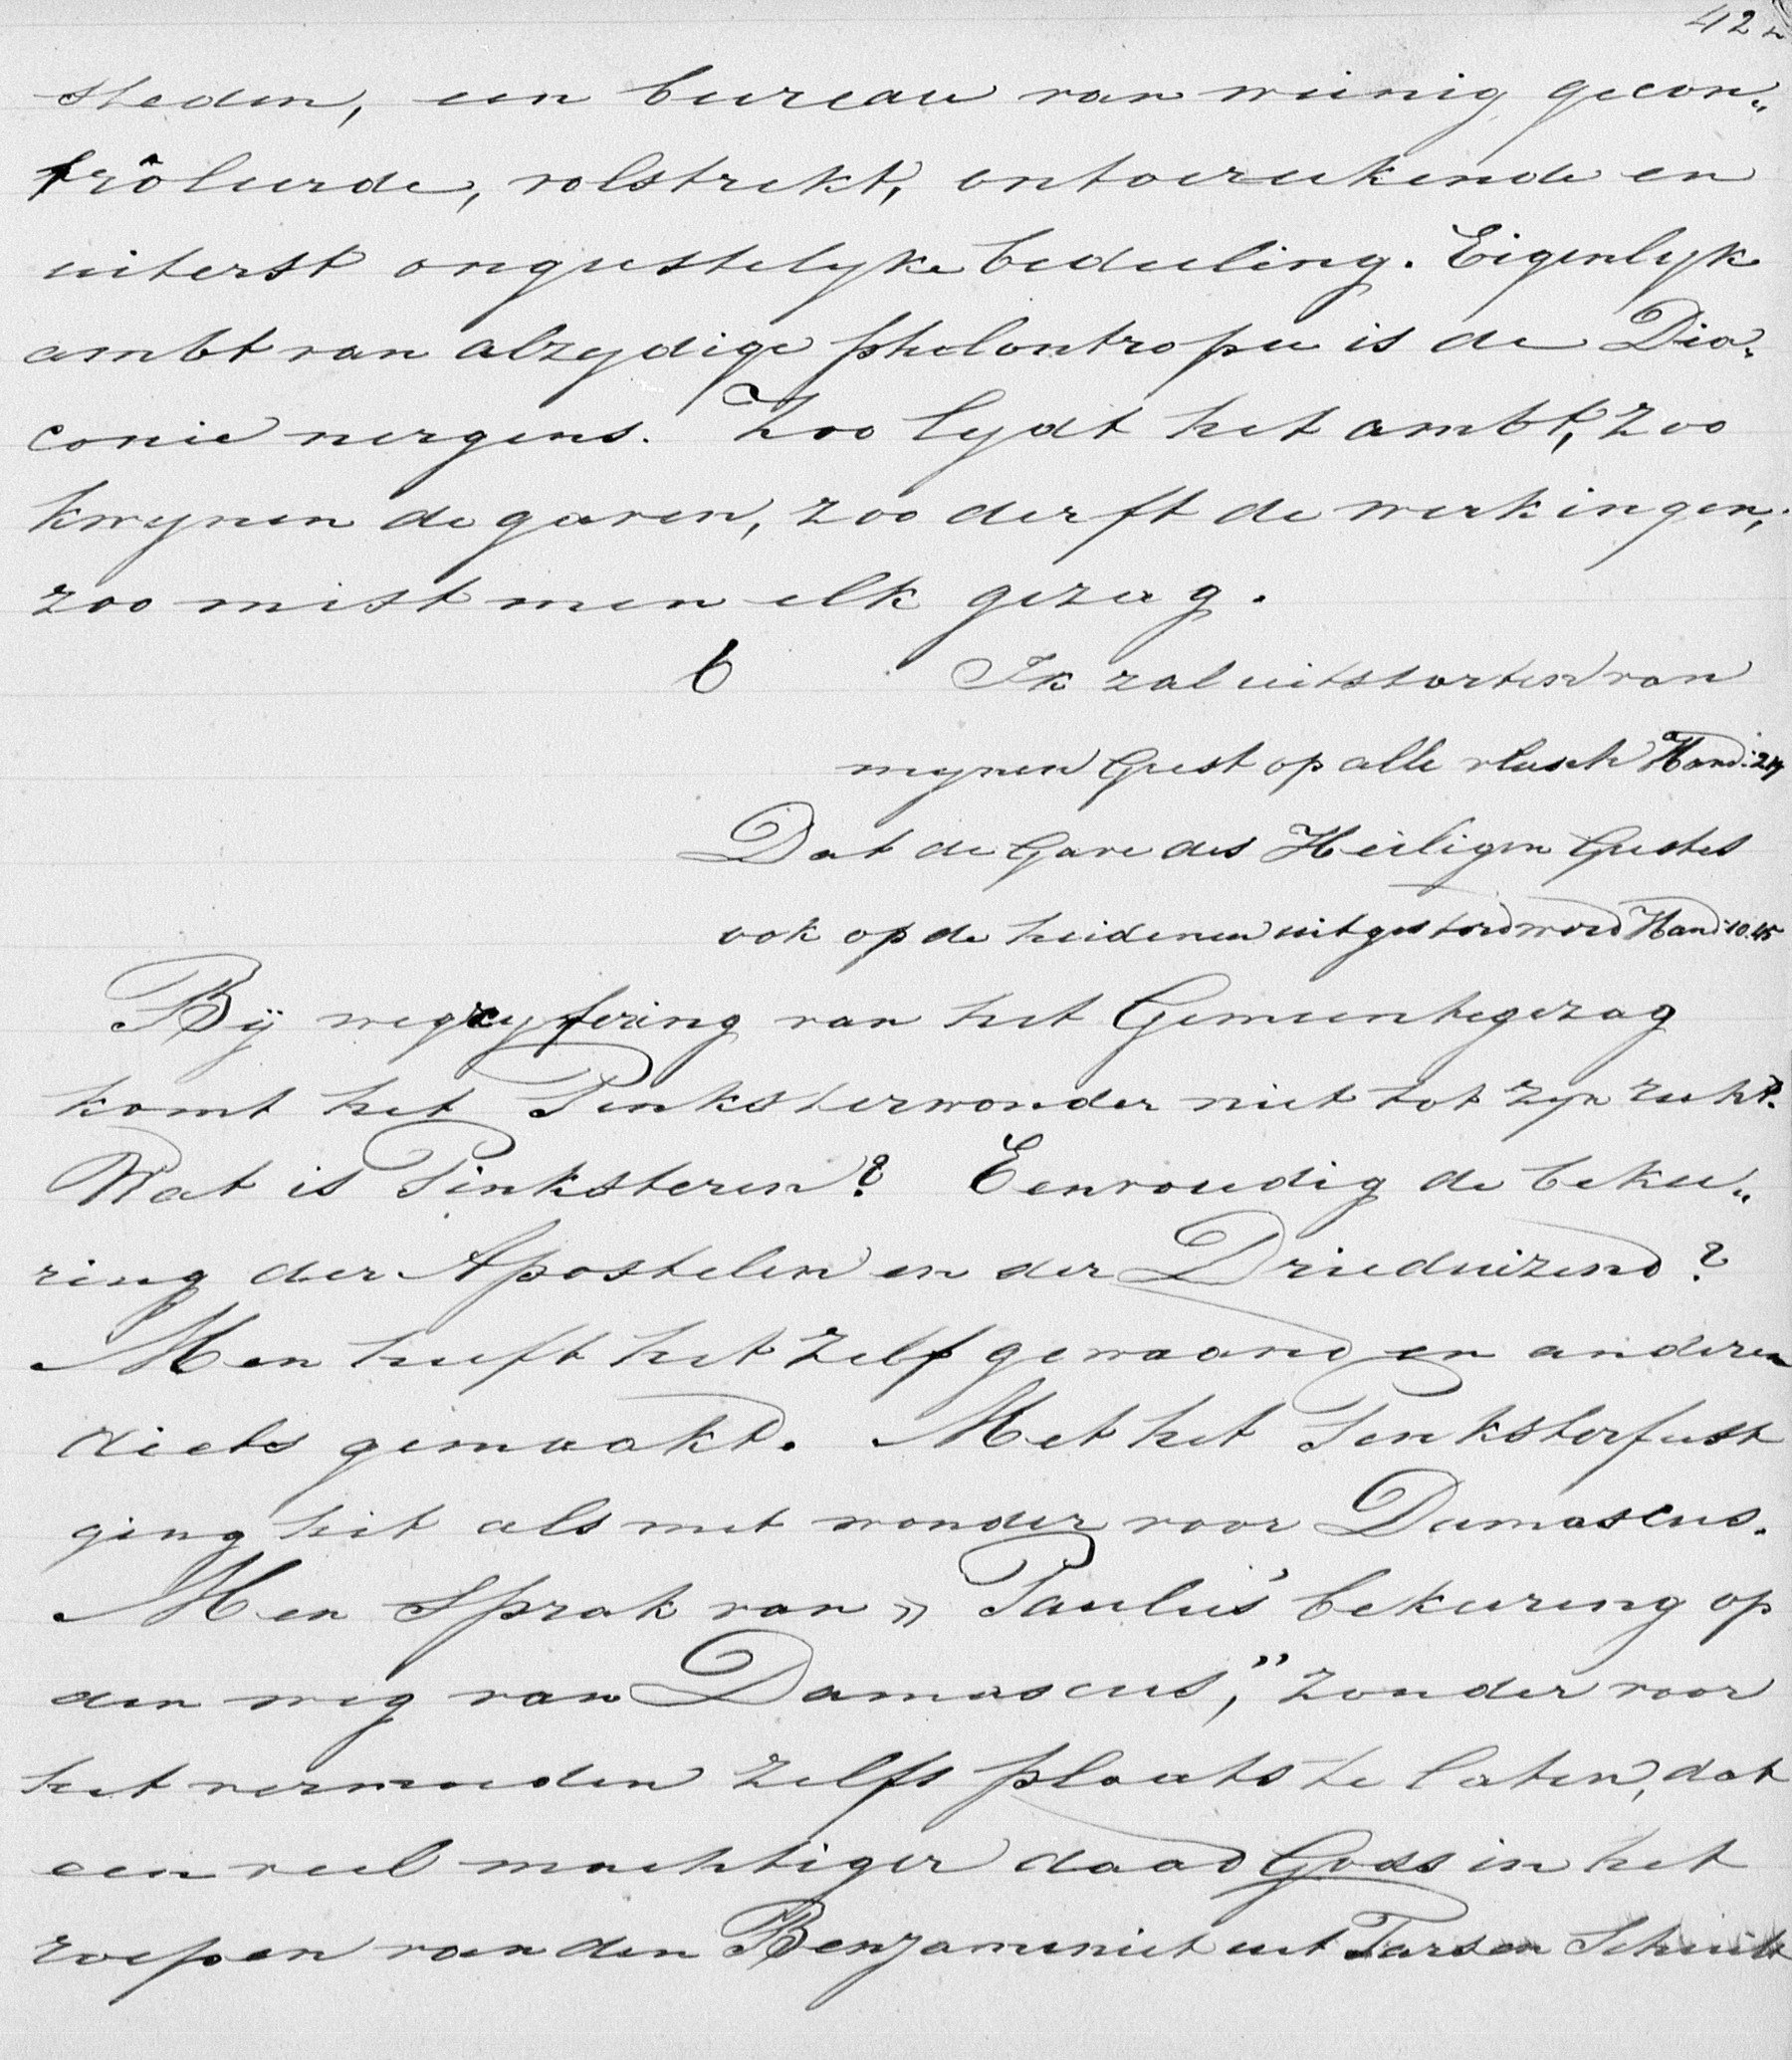 42
steden, een bureau van weinig gecon„
trôleerde, volstrekt, ontoereikende en
uiterst ongeestelyke bedeeling. Eigenlyk
ambt van alzydige philantropie is de Dia„
conie nergens. Zoo lydt het ambt, zoo
kwynen de gaven, zoo derft de werkingen,
zoo mist men elk gezag.
6 Ik zal uitstorten van
mynen Geest op alle vleesch Hand: 2:17
Dat de Gave des Heiligen Geestes
ook op de heidenen uitgestord word Hand: 10.45
Bÿ wegcyfering van het Gemeentegezag
komt het Pinksterwonder niet tot zyn recht.
Wat is Pinksteren? Eenvoudig de bekee„
ring der Apostelen en der Drieduizend?
Men heeft het zelf gewaand en anderen
diets gemaakt. Met het Pinksterfeest
ging het als met wonder voor Damascus.
Men sprak van „Paulus' bekeering op
den weg van Damascus," zonder voor
het vermoeden zelfs plaats te laten, dat
een veel machtiger daad Gods in het
roepen van den Benjaminiet uit Tarsen Schuilt